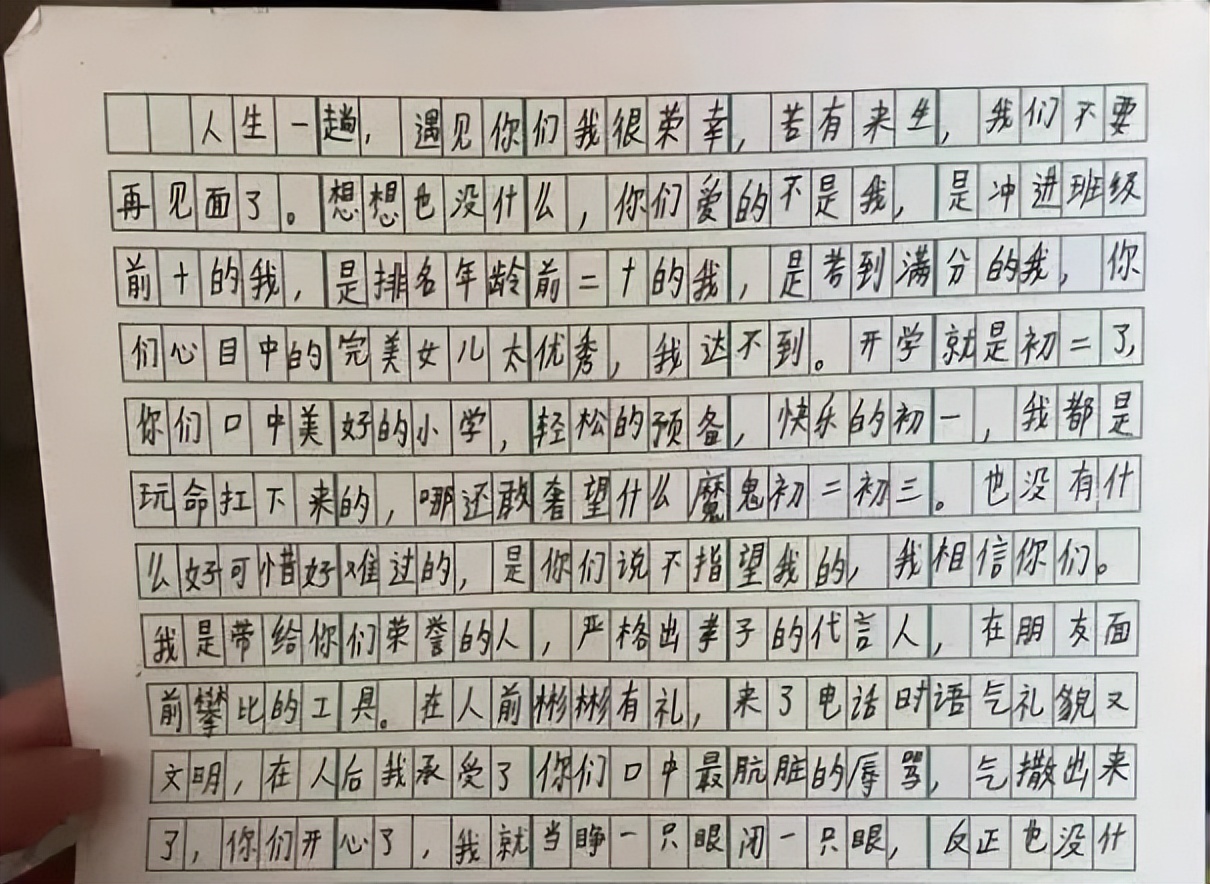 人生一趟，遇见你们我很荣幸，若有来生，我们不要
再见面了。想想也没什么，你们爱的不是我，是冲进班级
前十的我，是排名年龄前二十的我，是考到满分的我，你
们心目中的完美女儿太优秀，我达不到。开学就是初二了，
你们口中美好的小学，轻松的预备，快乐的初一，我都是
玩命扛下来的，哪还敢奢望什么魔鬼初二初三。也没有什
么好可惜好难过的，是你们说不指望我的，我相信你们。
我是带给你们荣誉的人，严格出孝子的代言人，在朋友面
前攀比的工具。在人前彬彬有礼，来了电话时语气礼貌又
文明，在人后我承受了你们口中最肮脏的辱骂，气撒出来
了，你们开心了，我就当睁一只眼闭一只眼，反正也没什